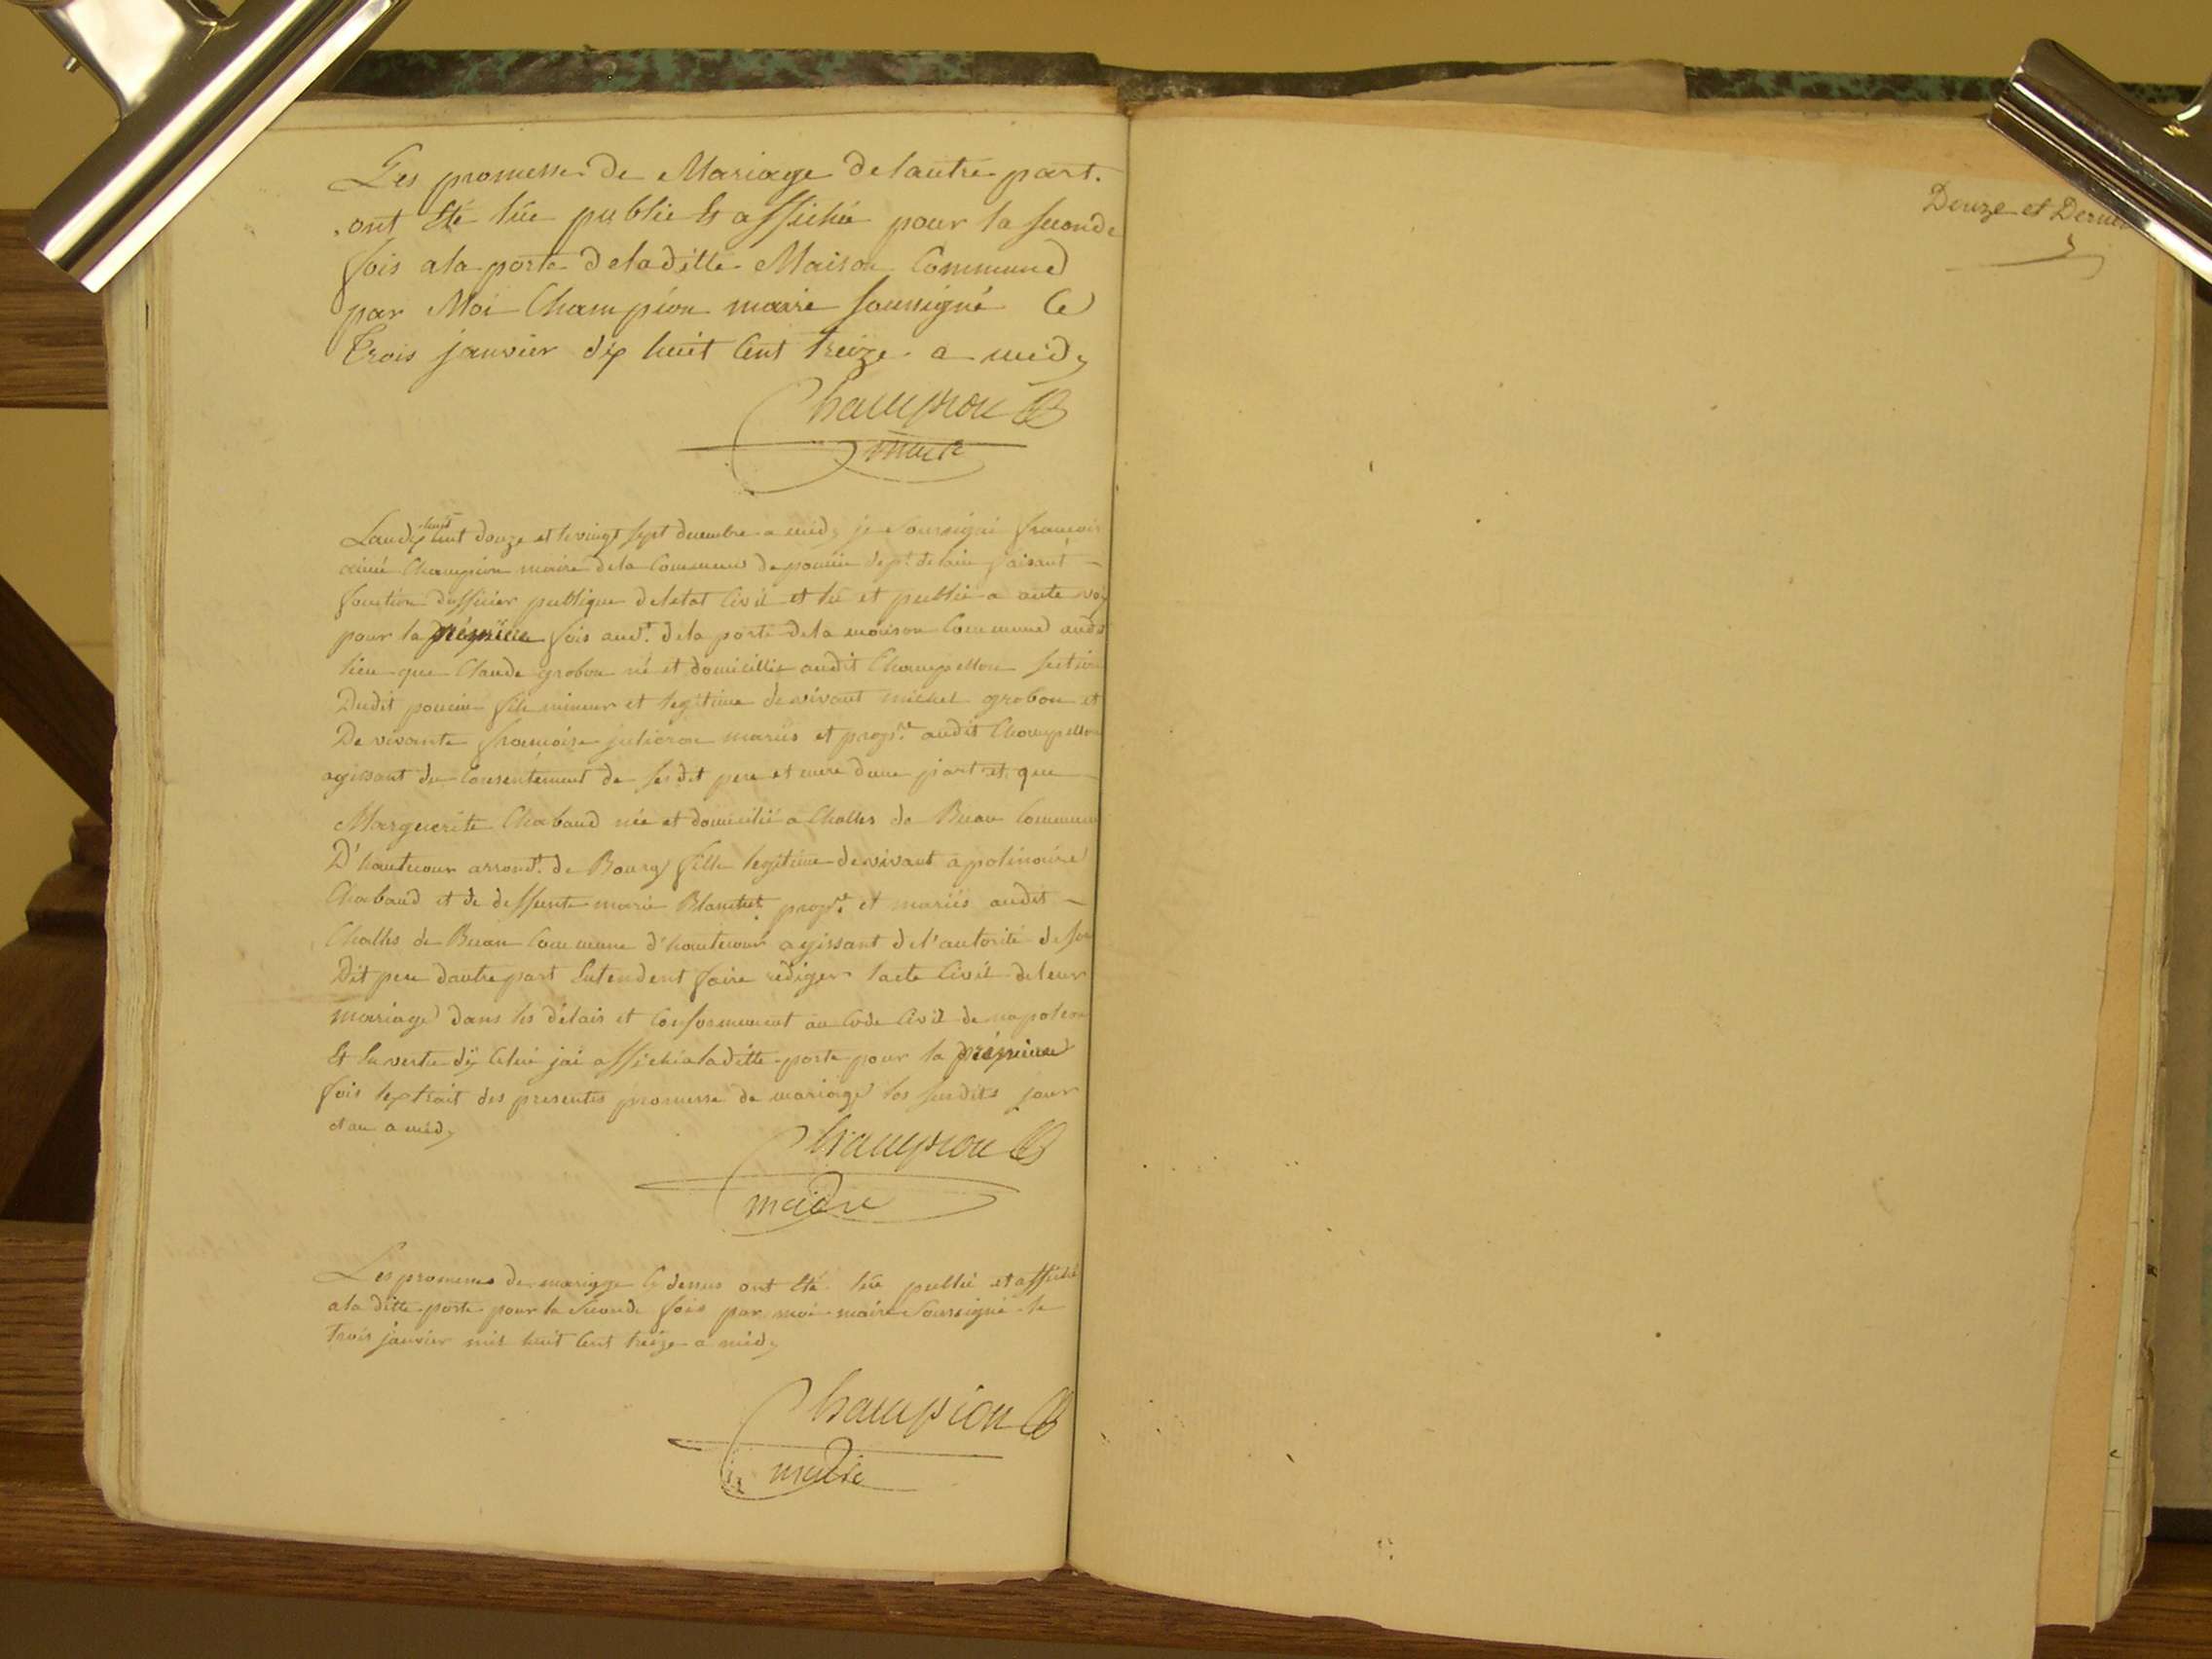 Les promesse de Mariage de lautre part.
ont Eté lûe publié Et affichée pour la seconde
fois a la porte de la ditte Maison Commune
par Moi Champion maire soussigné Ce
Trois janvier dix huit Cent treize a midy
Champion
maire
Landix huit cent douze et le vingt sept decembre a midy je soussigné françois
aimé Champion maire de la Commune de poncin dept. de lain faisant
fonction dofficier publique deletat Civil et lu et publié a aute voy
pour la prémiere fois audt. de la porte de la maison Commune audit
lieu que Claude grobon né et domicillié audit Champellon section
Dudit poncin fils mineur et legitime de vivant michel grobon et
De vivante francoise julieron mariés et propre. audit Champellon
agissant du Consentement de ses dit pere et mere dune part et que
Marguerite Chabaud née et domicilié a Challes de Buan Commune
D'hautecour arrondt. de Bourg fille legitime de vivant apolinaire
Chabaud et de deffunte marie Blanchet propre. et mariés audit
Challes de Buan Commune d'hautecour agissant de l'autorité de son
Dit pere dautre part Entendent faire rédiger lacte Civil de leur
mariage dans les délais et Conformement au Code Civil de napoleon
Et En vertu dy Celui jai affiché a la ditte porte pour la prémiere
fois lextrait des presentes promesse de mariage les susdits jour
et an a midy
Champion
maire
Les promesses de mariage Cy dessus ont Eté lûe publié et affiché
a la ditte porte pour la seconde fois par moi maire soussigné le
trois janvier mil huit Cent treize a midy
Champion
maire
Douze et Dernier